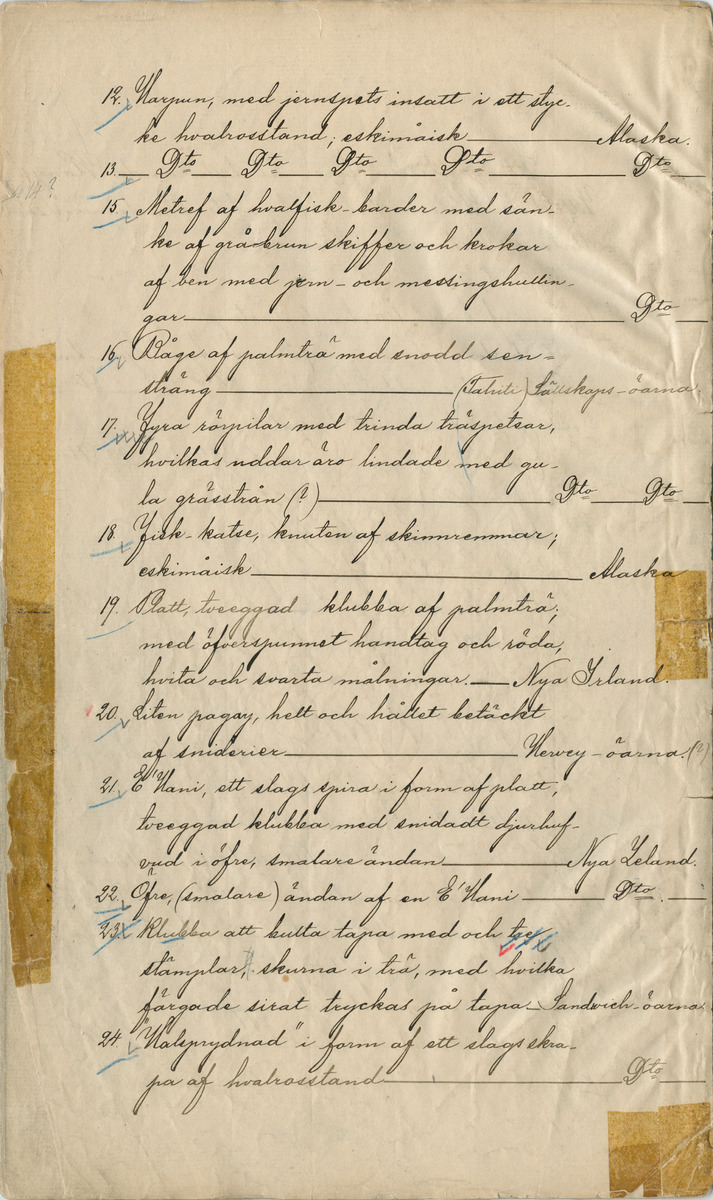 12. Harpun, med jernspets insatt i ett styc-
ke hvalrosstand; eskimåisk Alaska.
13. Dto Dto Dto Dto Dto
14?
15. Metref af hvalfisk-barder med sän-
ke af grå-brun skiffer och krokar
af ben med jern- och messingshullin-
gar Dto
16. Båge af palmträ med snodd sen=
sträng (Tahiti) Sällskaps-öarna.
17. Fyra rörpilar med trinda träspetsar,
hvilkas uddar äro lindade med gu-
la grässtrån (?) Dto Dto
18. Fisk-katse, knuten af skinnremmar;
eskimåisk Alaska
19. Platt, tveeggad klubba af palmträ;
med öfverspunnet handtag och röda,
hvita och svarta målningar. Nya Irland.
20. Liten pagay, helt och hållet betäckt
af sniderier Hervey-öarna. (?)
21. E'Hani, ett slags spira i form af platt,
tveeggad klubba med snidadt djurhuf-
vud i öfre, smalare ändan Nya Zeland.
22. Öfre, (smalare) ändan af en E'Hani Dto.
23. Klubba att bulta tapa med och tre
stämplar, skurna i trä, med hvilka
färgade sirat tryckas på tapa Sandwich-öarna
24. "Halsprydnad" i form af ett slags skra-
pa af hvalrosstand Dto